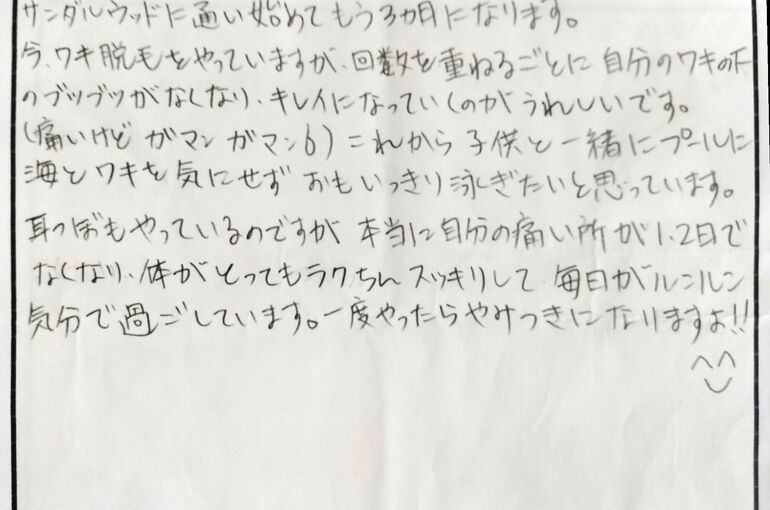 サンダルウッドに通い始めてもう3ヵ月になります。
今、ワキ脱毛をやっていますが、回数を重ねるごとに自分のワキの下
のブツブツがなくなり、キレイになっていくのがうれしいです。
(痛いけど ガマン ガマン6) これから子供と一緒にプールに
海とワキを気にせず おもいっきり泳ぎたいと思っています。
耳つぼもやっているのですが 本当に自分の痛い所が1、2日で
なくなり、体がとってもラクちん スッキリして 毎日がルンルン
気分で過ごしています。一度やったらやみつきになりますよ!!
^^